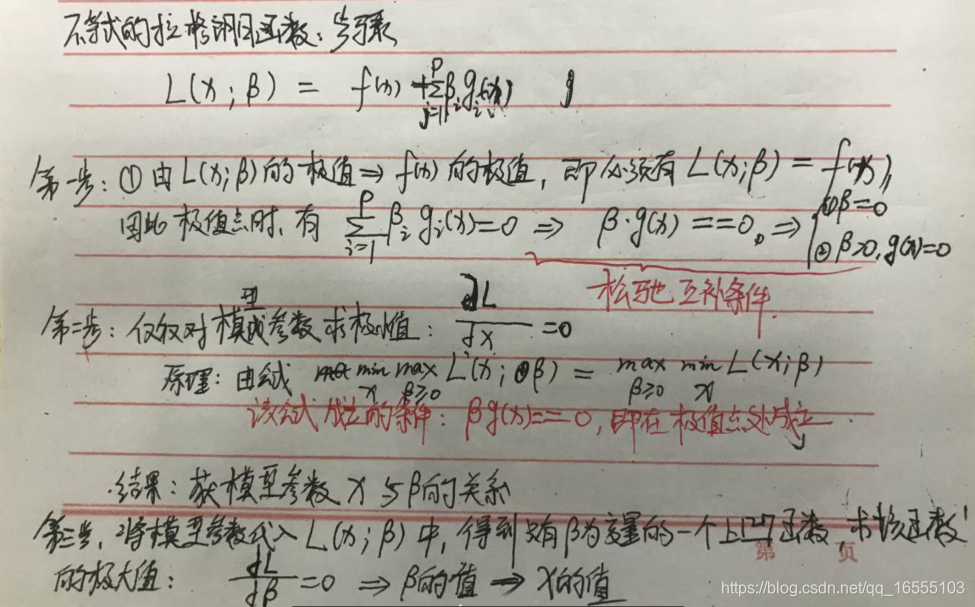 不等式的拉格朗日函数:步骤
L(x;β) = f(x) + Σ_{i=1}^{p} β_i g_i(x)
第一步:① 由L(x;β)的极值 ⇒ f(x)的极值,即必须有 L(x;β) = f(x),
因此极值点时,有 Σ_{i=1}^{p} β_i g_i(x)=0 ⇒ β·g(x)==0。⇒ { ①β=0
②β>0, g(x)=0
松驰互补条件.
第二步:仅仅对模型参数求极小值: dL/dx =0
原理:由公式 min_x max_{β≥0} L(x;β) = max_{β≥0} min_x L(x;β)
该公式成立的条件:βg(x)==0,即在极值点处成立
结果:获模型参数 x 与β的关系
第三步,将模型参数代入L(x;β)中,得到只有β为变量的一个上凸函数,求该函数
的极大值: dL/dβ =0 ⇒ β的值 → x的值
第 页
https://blog.csdn.net/qq_16555103